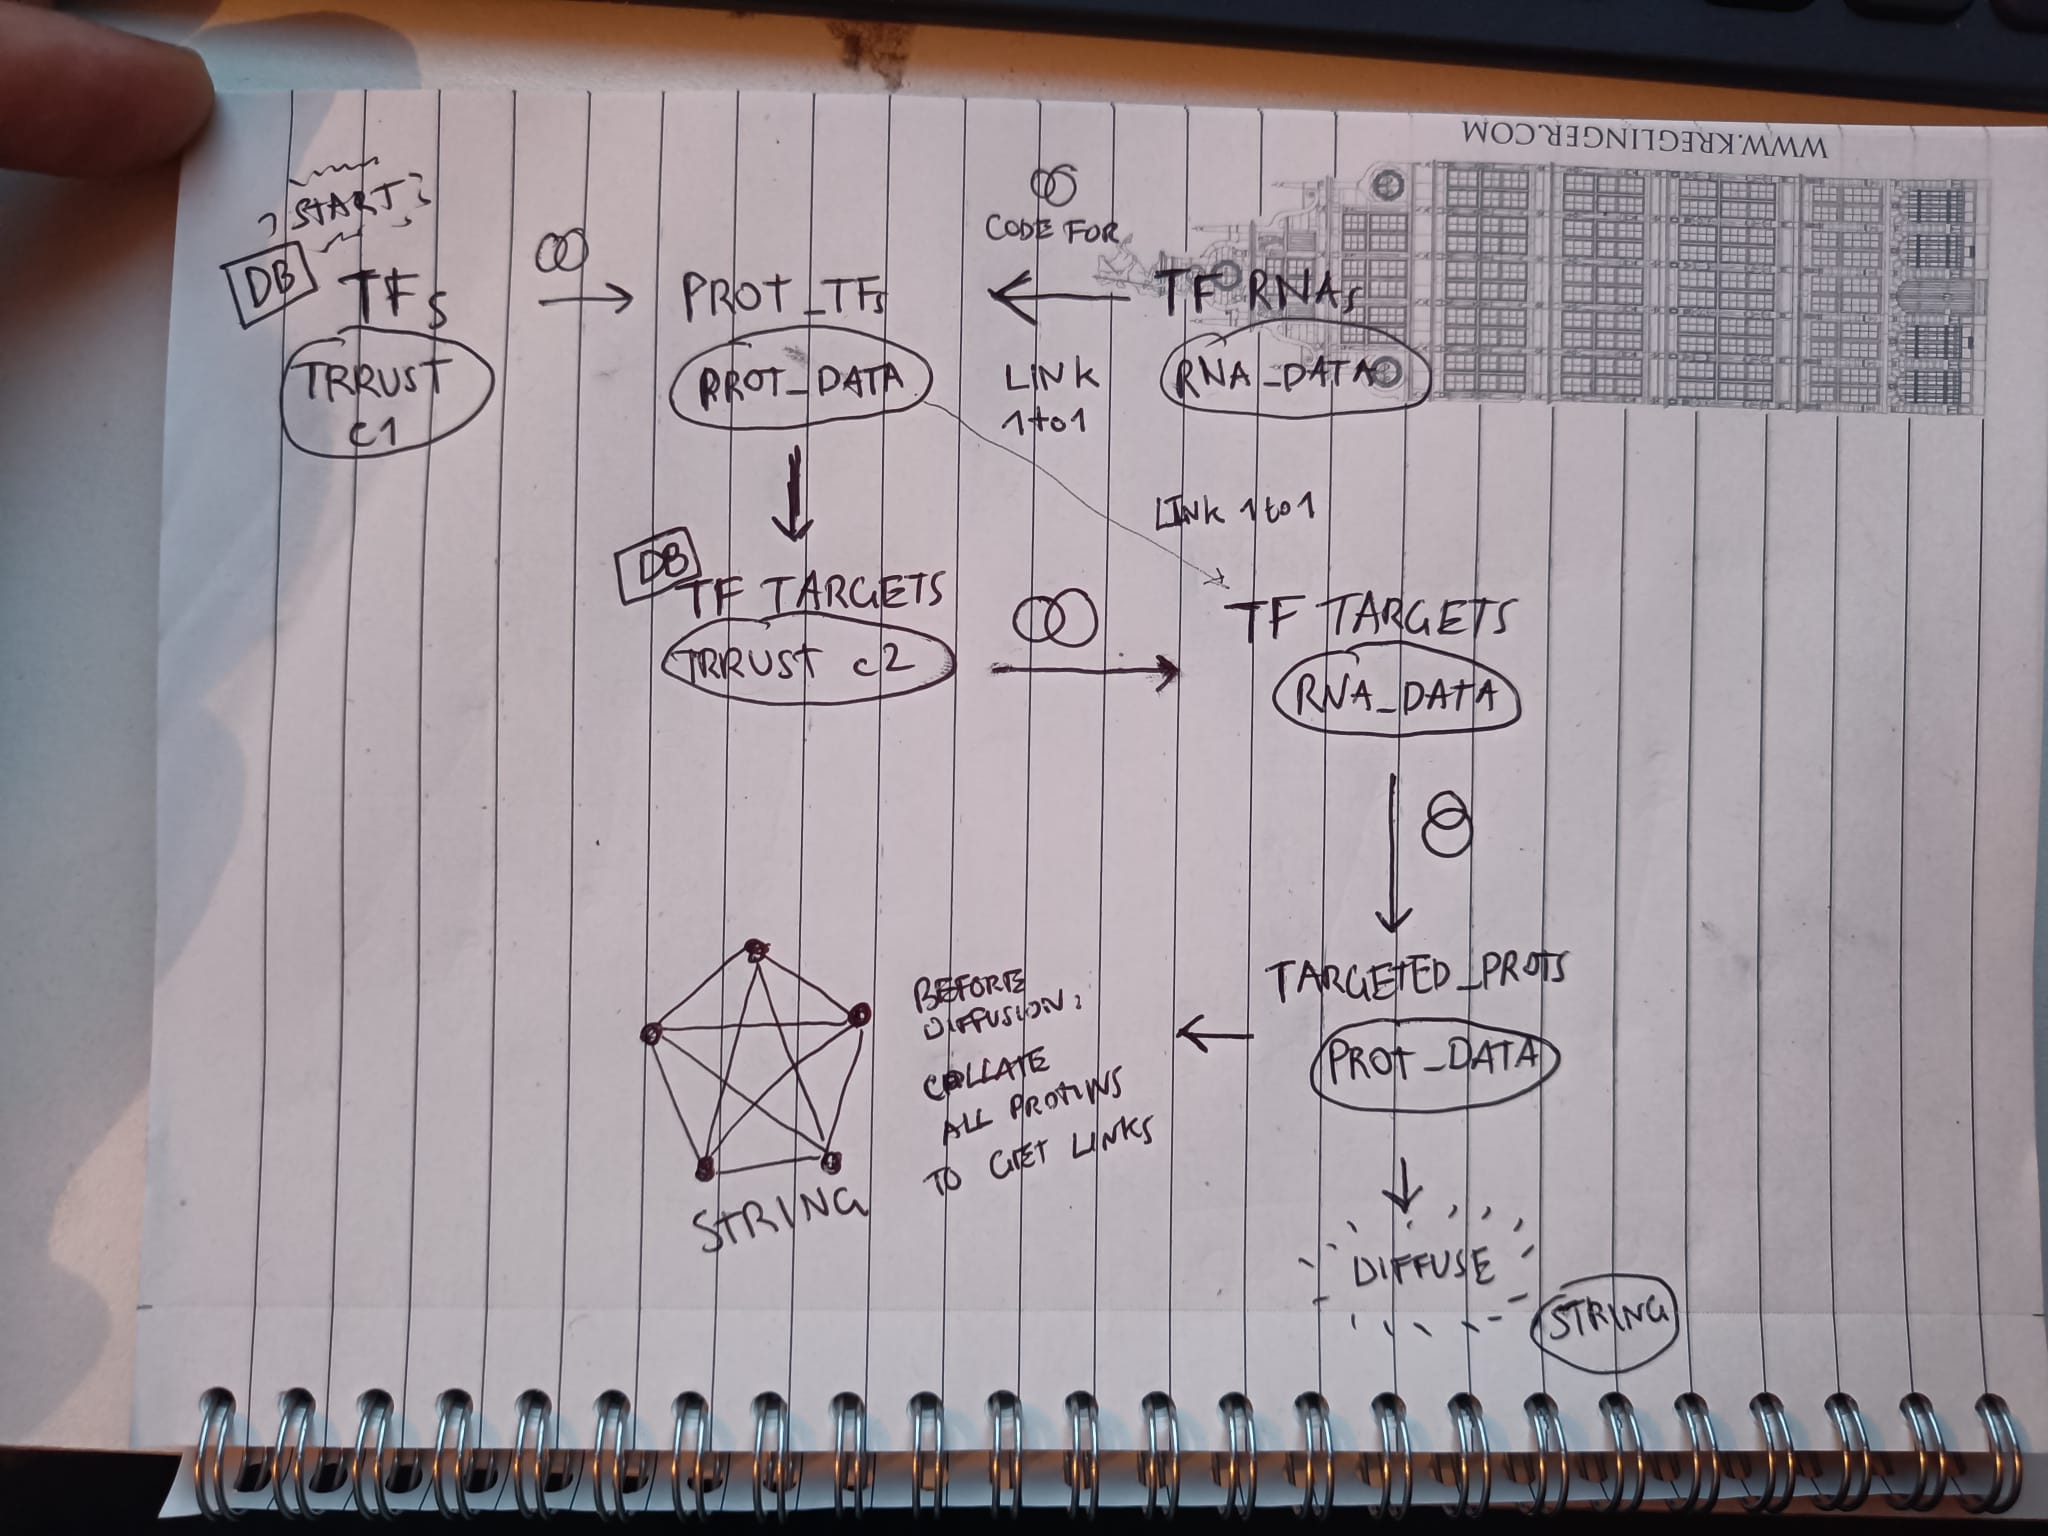 WWW.KREGLINGER.COM
START
DB
TFs
TRRUST
c1
PROT_TFs
PROT_DATA
CODE FOR
LINK
1to1
TF RNAs
RNA_DATA
LINK 1to1
DB
TF TARGETS
TRRUST c2
TF TARGETS
RNA_DATA
TARGETED_PROTS
PROT_DATA
BEFORE
DIFFUSION:
COLLATE
ALL PROTEINS
TO GET LINKS
STRING
DIFFUSE
STRING